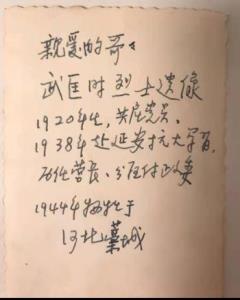 亲爱的哥々
武匡时烈士遗像
1920年生,共产党员、
1938年赴延安抗大学习,
历任营长、分区付政委
1944年牺牲于
河北藁城